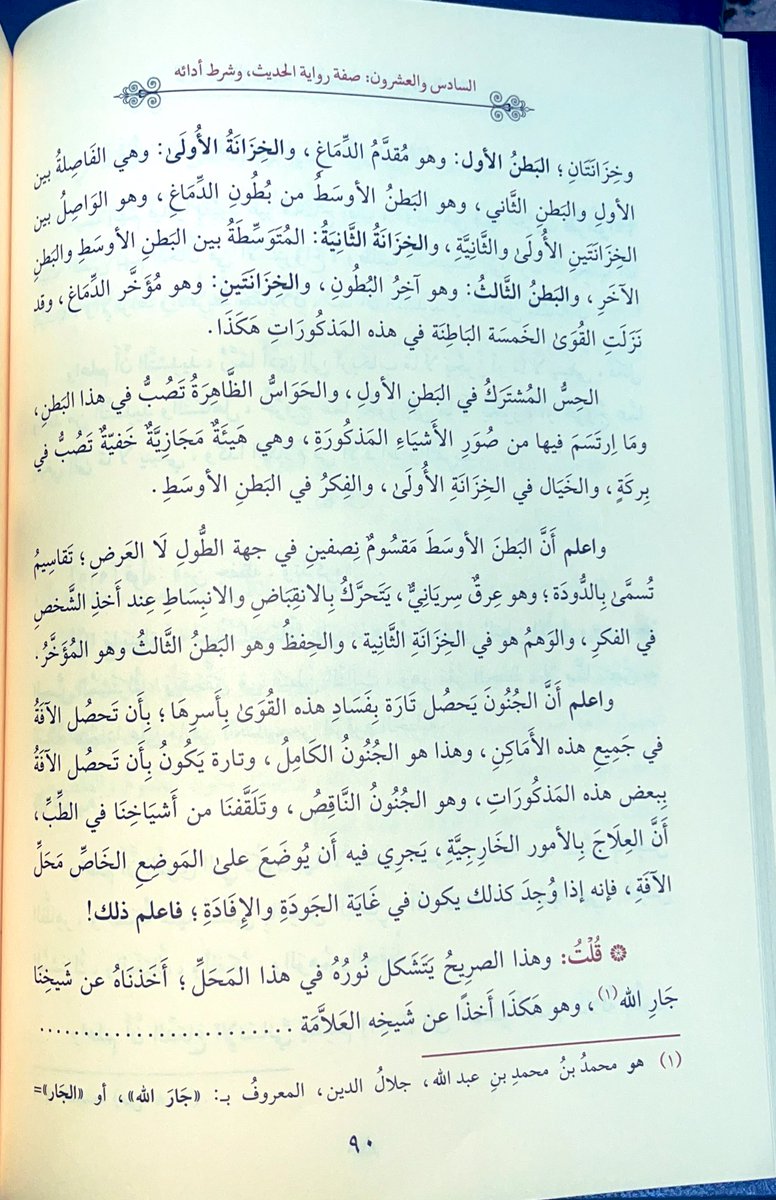 السادس والعشرون: صفة رواية الحديث، وشرط أدائه
وخِزَانَتَانِ؛ البَطنُ الأول: وهو مُقدَّمُ الدِّمَاغِ، والخِزَانَةُ الأُولَىٰ: وهي الفَاصِلةُ بين
الأولِ والبَطنِ الثَّاني، وهو البَطنُ الأوسَطُ من بُطُونِ الدِّمَاغِ، وهو الوَاصِلُ بين
الخِزَانَتَينِ الأُولَىٰ والثَّانِيَّةِ، والخِزَانَةُ الثَّانِيَةُ: المُتَوَسِّطَةُ بين البَطنِ الأوسَطِ والبَطنِ
الآخَرِ، والبَطنُ الثَّالثُ: وهو آخِرُ البُطُونِ، والخِزَانَتَينِ: وهو مُؤَخَّر الدِّمَاغِ، وقد
نَزَلَتِ القُوَىٰ الخَمسَة البَاطِنَة في هذه المَذكُورَاتِ هَكَذَا.
الحِسُّ المُشتَرَكُ في البَطنِ الأولِ، والحَوَاسُّ الظَّاهِرَةُ تَصُبُّ في هذا البَطنِ،
ومَا اِرتَسَمَ فيها من صُوَرِ الأَشيَاءِ المَذكُورَةِ، وهي هَيئَةٌ مَجَازِيَّةٌ خَفيَّةٌ تَصُبُّ في
بِركَةٍ، والخَيَال في الخِزَانَةِ الأُولَىٰ، والفِكرُ في البَطنِ الأوسَطِ.
واعلم أَنَّ البَطنَ الأوسَطَ مَقسُومٌ نِصفينِ في جهة الطُّولِ لَا العَرضِ؛ تَقاسِيمُ
تُسمَّىٰ بِالدُّودَة؛ وهو عِرقٌ سِريَانِيٌّ، يَتَحرَّكُ بِالانقِبَاضِ والانبِسَاطِ عِند أَخذِ الشَّخصِ
في الفكرِ، والوَهمُ هو في الخِزَانَةِ الثَّانِية، والحِفظُ وهو البَطنُ الثَّالثُ وهو المُؤَخَّرُ.
واعلم أَنَّ الجُنُونَ يَحصُل تَارَة بِفَسَادِ هذه القُوَىٰ بِأَسرِهَا؛ بِأَن تَحصُل الآفَةُ
في جَمِيعِ هذه الأَمَاكِنِ، وهذا هو الجُنُونُ الكَامِلُ، وتارة يَكُونُ بِأَن تَحصُل الآفَةُ
بِبعض هذه المَذكُورَاتِ، وهو الجُنُونُ النَّاقِصُ، وتَلَقَّفنَا من أَشيَاخِنَا في الطِّبِّ،
أَنَّ العِلَاجَ بِالأمور الخَارِجِيَّةِ، يَجرِي فيه أَن يُوضَعَ علىٰ المَوضعِ الخَاصِّ مَحَلِّ
الآفَةِ، فإنه إذا وُجِدَ كذلك يكون في غَايَة الجَودَةِ والإِفَادَةِ؛ فاعلم ذلك!
❁ قُلْتُ: وهذا الصريحُ يَتَشَكل نُورُهُ في هذا المَحَلِّ؛ أَخَذنَاهُ عن شَيخِنَا
جَارِ الله(١)، وهو هَكَذَا أَخذًا عن شَيخِه العَلاَّمَة ........................
(١) هو محمدُ بنُ محمدِ بنِ عبد الله، جلالُ الدين، المعروفُ بـ: «جَارَ الله»، أو «الجَار»=
٩٠